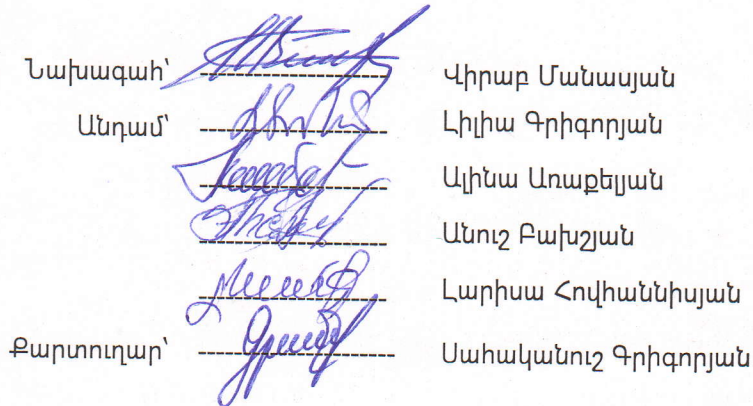 Նախագահ՝ Վիրաբ Մանասյան
Անդամ՝ Լիլիա Գրիգորյան
Ալինա Առաքելյան
Անուշ Բախշյան
Լարիսա Հովհաննիսյան
Քարտուղար՝ Սահականուշ Գրիգորյան